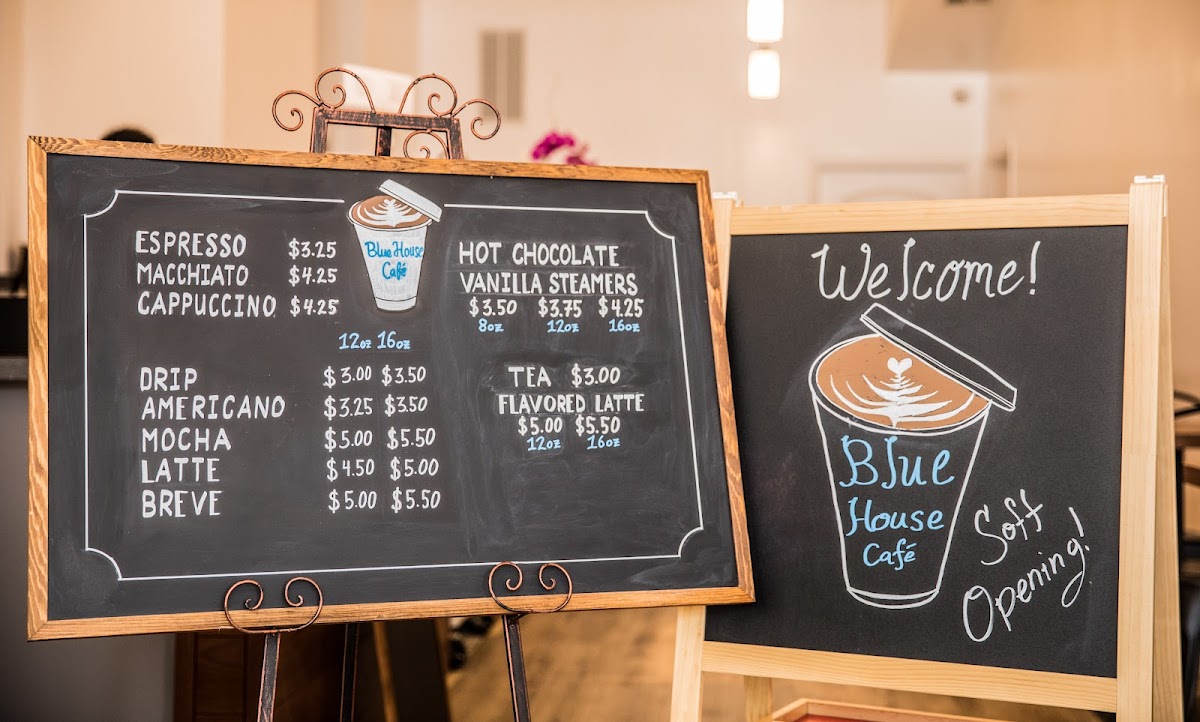 ESPRESSO $3.25
MACCHIATO $4.25
CAPPUCCINO $4.25
Blue House
Café
12oz 16oz
DRIP $3.00 $3.50
AMERICANO $3.25 $3.50
MOCHA $5.00 $5.50
LATTE $4.50 $5.00
BREVE $5.00 $5.50
HOT CHOCOLATE
VANILLA STEAMERS
$3.50 $3.75 $4.25
8oz 12oz 16oz
TEA $3.00
FLAVORED LATTE
$5.00 $5.50
12oz 16oz
Welcome!
Blue
House
Café
Soft
Opening!